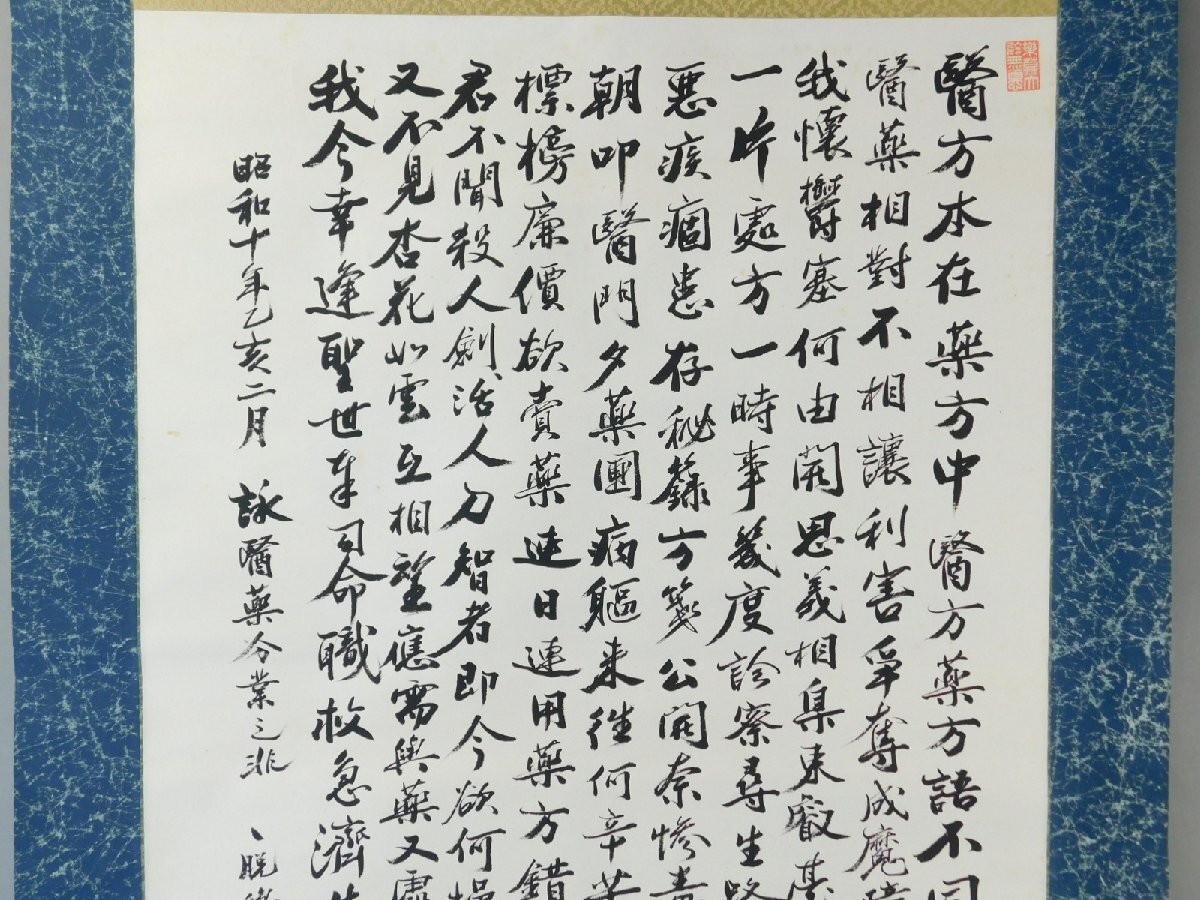 醫方本在藥方中醫方藥方語不同
醫藥相對不相讓利害爭奪成魔
我懷欝塞何由開思義相集東叡臺
一片處方一時事幾度診察尋生路
惡疾痼恙存秘籙方箋公開奈慘
朝叩醫門夕藥團病軀來往何辛苦
標榜廉價欲賣藥連日連用藥方錯
君不聞殺人劍活人刀智者即今欲何
又不見杏花如雲互相望應需與藥又
我今幸逢聖世奉司命職救急濟
昭和十年乙亥二月 詠醫藥分業之非